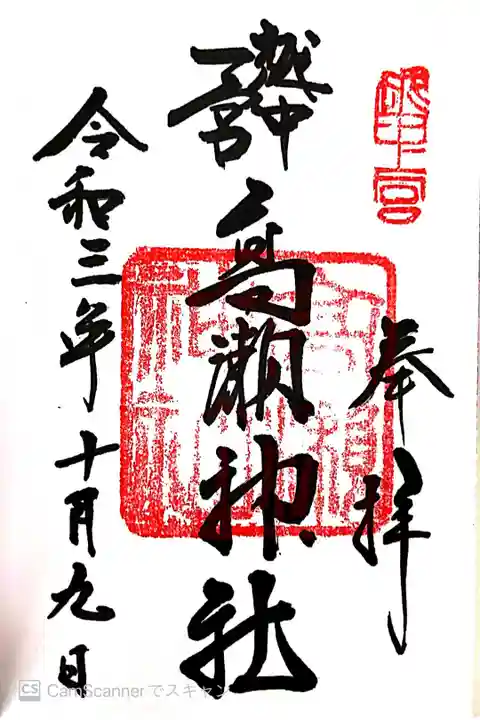 奉拝
越中
一宮
高瀬神社
令和三年十月九日
越中一宮
高瀬神社
CS CamScannerでスキャン